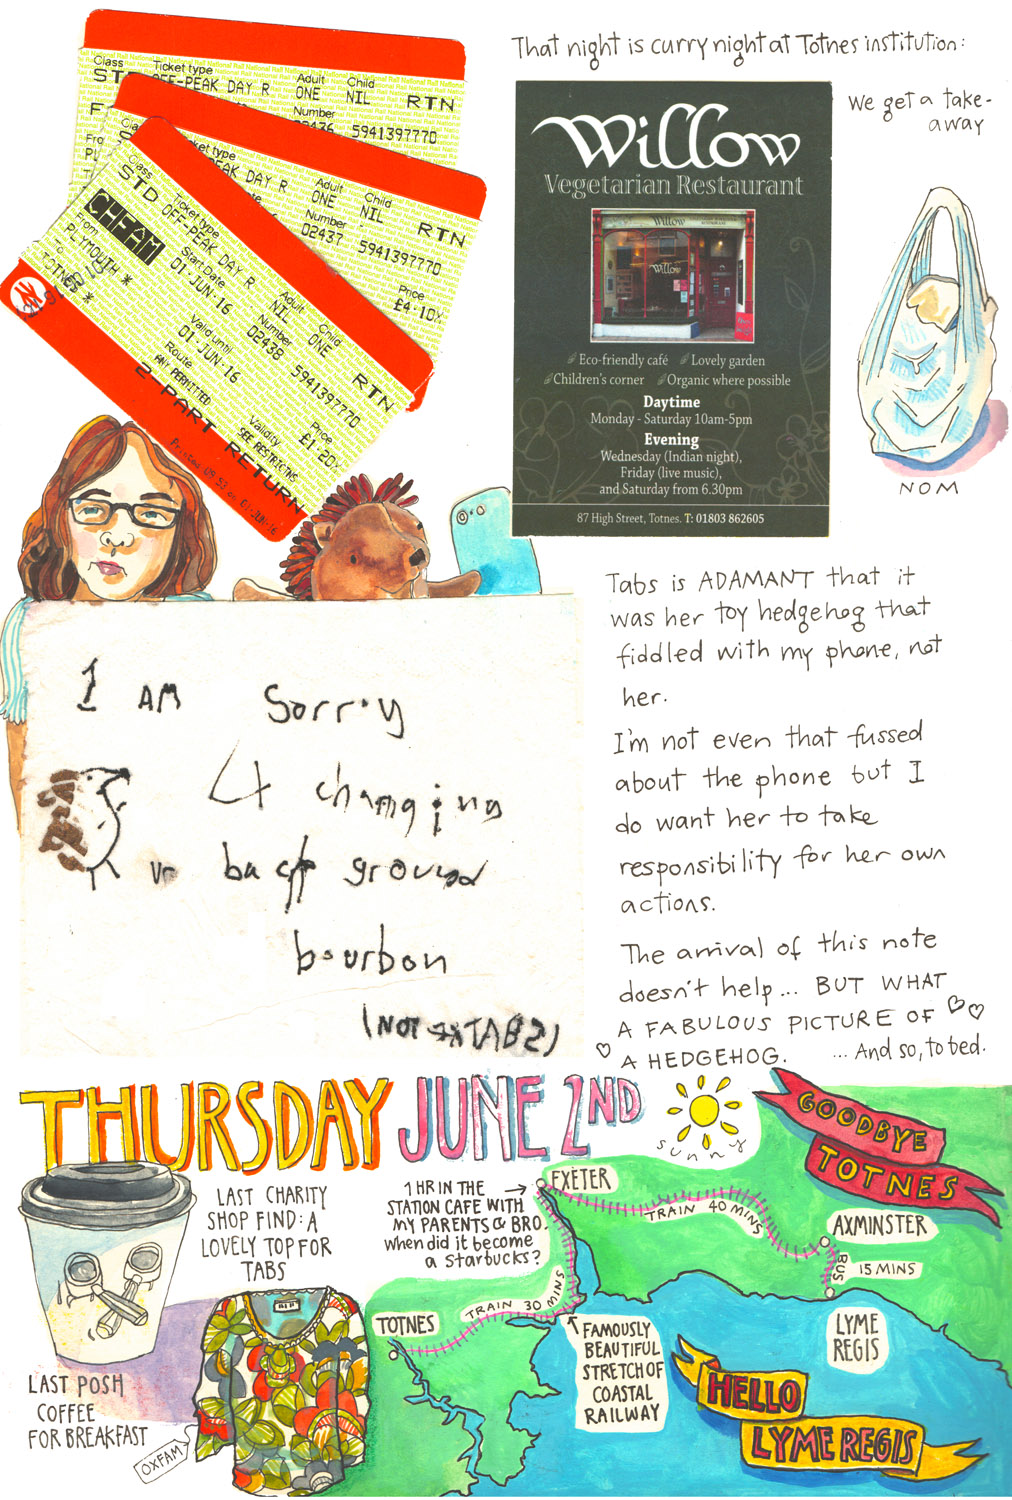 Class
Ticket type
Adult
Child
STD
OFF-PEAK DAY R
ONE
NIL
RTN
Number
5941397770
Class
Ticket type
Adult
Child
PEAK DAY R
ONE
NIL
RTN
Number
02437
5941397770
Price
£4·10X
Class
Ticket type
Adult
Child
STD
OFF-PEAK DAY R
NIL
ONE
RTN
CHEAM
Start Date
Number
01·JUN·16
02438
5941397770
From
PLYMOUTH *
Valid until
Price
01·JUN·16
£1·20X
TOTNES *
Route
Validity
ANY PERMITTED
SEE RESTRICTNS
2-PART RETURN
Printed 09 53 on 01·JUN·16
That night is curry night at Totnes institution:
Willow
Vegetarian Restaurant
Willow
Willow
Eco-friendly café Lovely garden
Children's corner Organic where possible
Daytime
Monday - Saturday 10am-5pm
Evening
Wednesday (Indian night),
Friday (live music),
and Saturday from 6.30pm
87 High Street, Totnes. T: 01803 862605
We get a take-
away
NOM
I AM Sorry
4 changing
ur back ground
bourbon
(NOT TABS)
Tabs is ADAMANT that it
was her toy hedgehog that
fiddled with my phone, not
her.
I'm not even that fussed
about the phone but I
do want her to take
responsibility for her own
actions.
The arrival of this note
doesn't help... BUT WHAT
A FABULOUS PICTURE OF
A HEDGEHOG.
... And so, to bed.
THURSDAY JUNE 2ND
sunny
LAST POSH
COFFEE
FOR BREAKFAST
LAST CHARITY
SHOP FIND: A
LOVELY TOP FOR
TABS
OXFAM
1 HR IN THE
STATION CAFE WITH
MY PARENTS & BRO.
When did it become
a Starbucks?
GOODBYE
TOTNES
EXETER
TRAIN 40 MINS
AXMINSTER
BUS
15 MINS
LYME
REGIS
TOTNES
TRAIN 30 MINS
FAMOUSLY
BEAUTIFUL
STRETCH OF
COASTAL
RAILWAY
HELLO
LYME REGIS